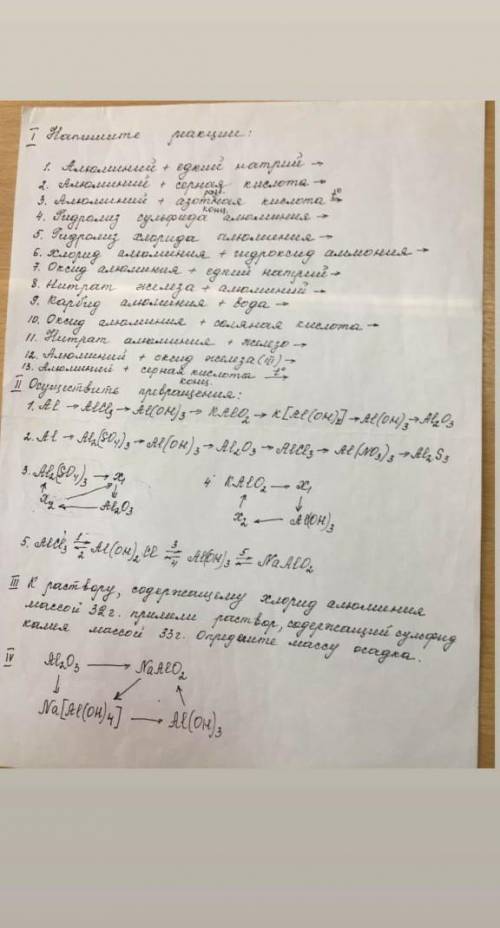 I Напишите реакции:
1. Алюминий + едкий натрий →
2. Алюминий + серная кислота →
разб.
3. Алюминий + азотная кислота t° →
конц.
4. Гидролиз сульфида алюминия →
5. Гидролиз хлорида алюминия →
6. Хлорид алюминия + гидроксид аммония →
7. Оксид алюминия + едкий натрий →
8. Нитрат железа + алюминий →
9. Карбид алюминия + вода →
10. Оксид алюминия + соляная кислота →
11. Нитрат алюминия + железо →
12. Алюминий + оксид железа (III) →
13. Алюминий + серная кислота t° →
конц.
II Осуществите превращения:
1. Al → AlCl3 → Al(OH)3 → KAlO2 → K[Al(OH)4] → Al(OH)3 → Al2O3
2. Al → Al2(SO4)3 → Al(OH)3 → Al2O3 → AlCl3 → Al(NO3)3 → Al2S3
3. Al2(SO4)3 → X1 4 KAlO2 → X1
X2 ← Al2O3 X2 ← Al(OH)3
5. AlCl3 1⇌2 Al(OH)2Cl 3⇌4 Al(OH)3 5⇌ NaAlO2
III К раствору, содержащему хлорид алюминия
массой 32г. прилили раствор, содержащий сульфид
калия массой 33г. Определите массу осадка.
IV Al2O3 → NaAlO2
Na[Al(OH)4] → Al(OH)3